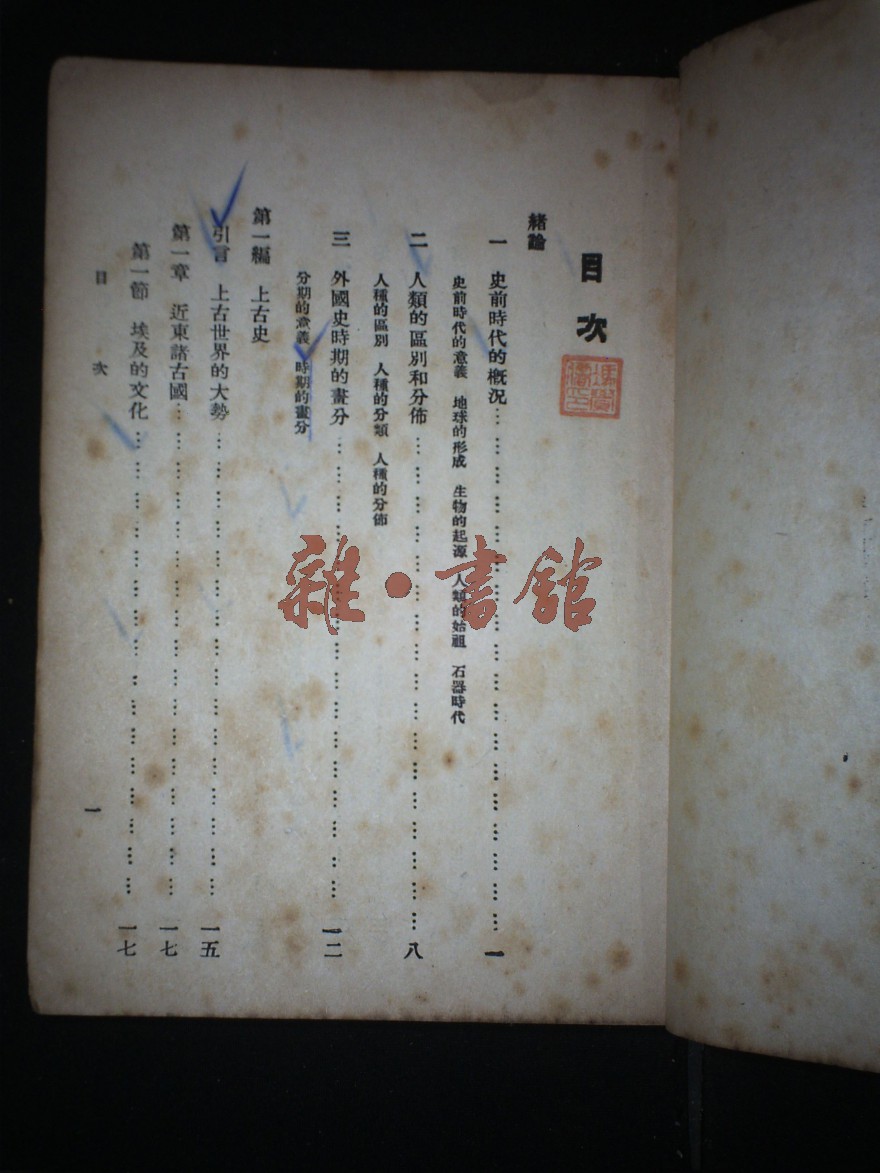 目次
緒論
一 史前時代的概況………………一
史前時代的意義 地球的形成 生物的起源 人類的始祖 石器時代
二 人類的區別和分佈………………八
人種的區別 人種的分類 人種的分佈
三 外國史時期的畫分………………一二
分期的意義 時期的畫分
第一編 上古史
引言 上古世界的大勢………………一五
第一章 近東諸古國………………一七
第一節 埃及的文化………………一七
目次
一
雜·書館